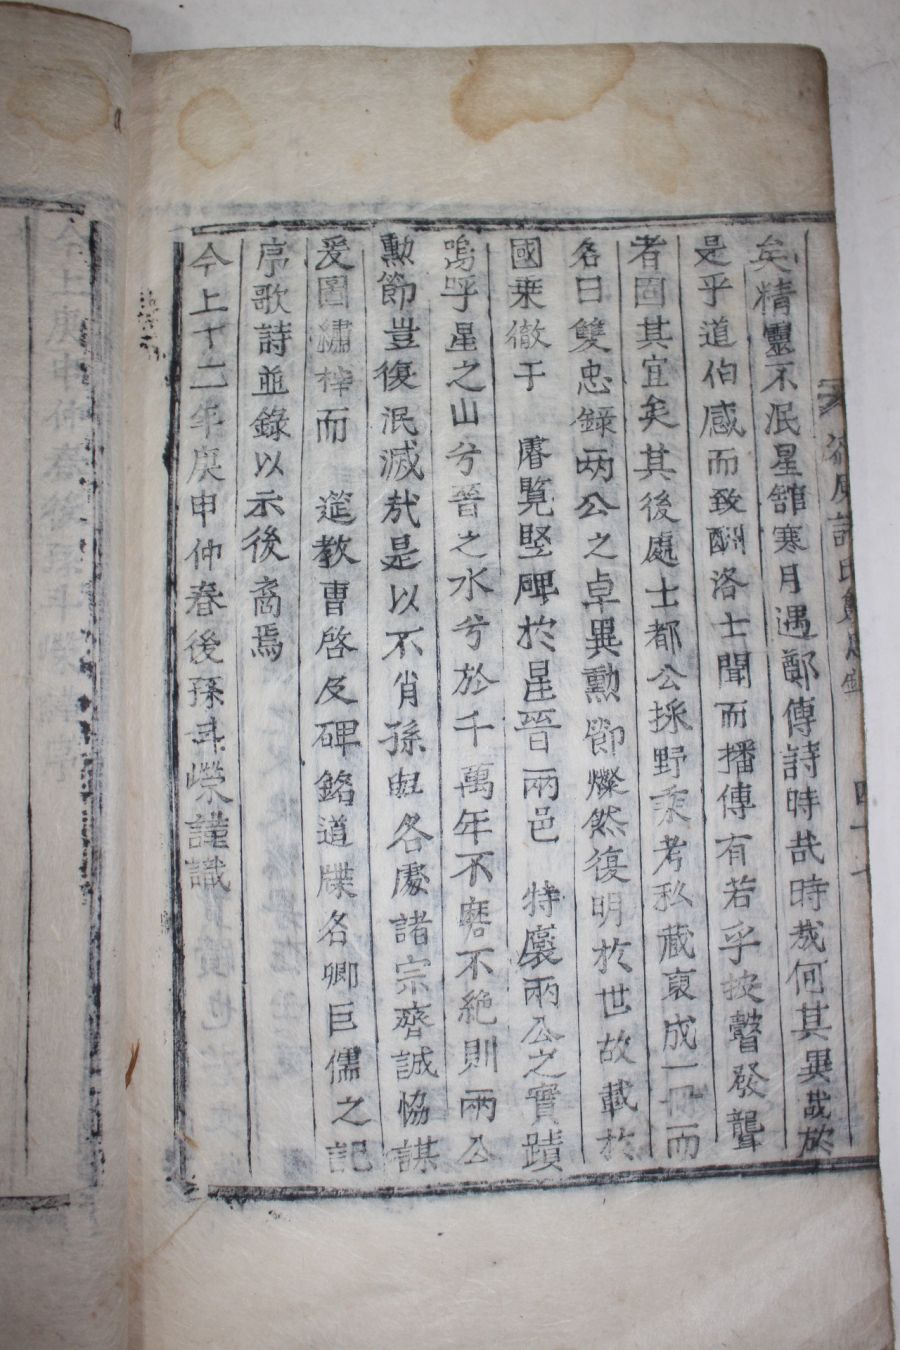 矣精靈不泯星館寒月遇鄭傳詩時哉時哉何其異哉於
是乎道伯感而致酬洛士聞而播傳有若乎披聾發聾
者固其宜矣其後處士都公採野乘考私藏裒成一冊而
名曰雙忠錄兩公之卓異勳節燦然復明於世故載於
國乘徹于 睿覽竪碑於星晉兩邑 特褒兩公之實蹟
嗚呼星之山兮晉之水兮於千萬年不磨不絶則兩公
勳節豈復泯滅哉是以不肖孫與各處諸宗齊誠恊謀
爰圖繡梓而 筵教曹啓及碑銘道牒名卿巨儒之記
序歌詩並錄以示後裔焉
今上十二年庚申仲春後孫斗嶸謹識
許氏雙忠錄
四十